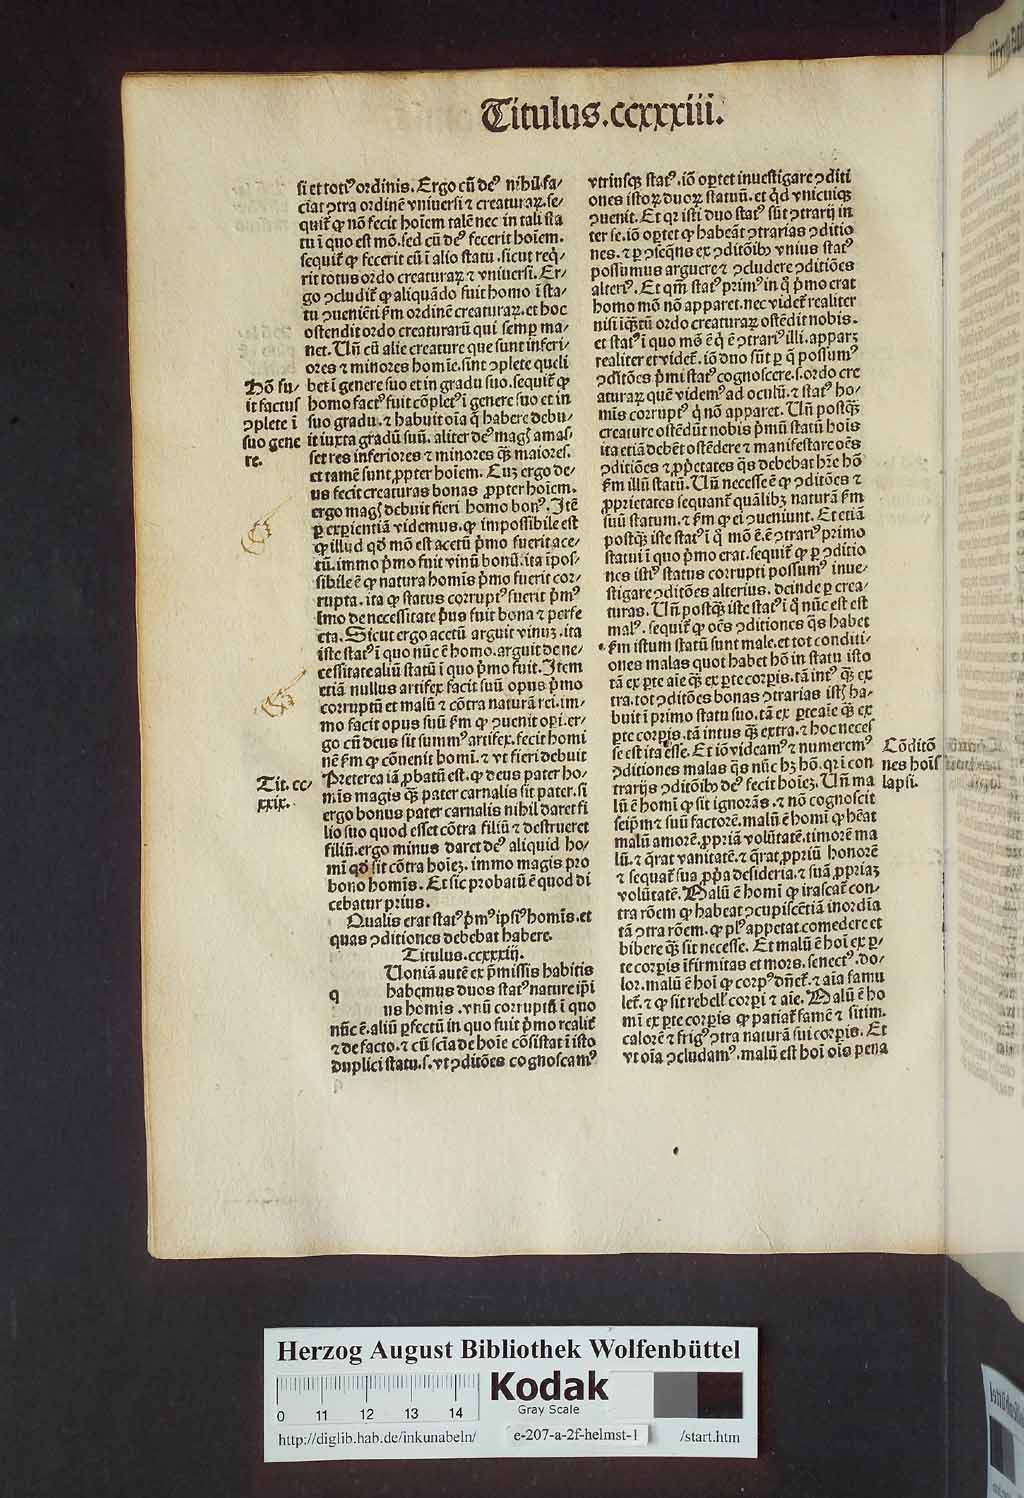 Titulus.ccxxxiii.
si et totiꝰ ordinis. Ergo cū deꝰ nihil fa⸗
ciat ꝯtra ordinē vniuersi ⁊ creaturaꝝ. se⸗
quit̄ ꝙ nō fecit hoīem talē nec in tali sta
tu ī quo est mō. sed cū deꝰ fecerit hoīem.
sequit̄ ꝙ fecerit eū ī alio statu. sicut req̇⸗
rit totus ordo creaturaꝝ ⁊ vniuersi. Er⸗
go ꝯcludit̄ ꝙ aliquādo fuit homo ī sta⸗
tu ꝯueniēti ẜm ordinē creaturaꝝ. et hoc
ostendit ordo creaturarū qui semꝑ ma⸗
net. Uñ cū alie creature que sunt inferi⸗
ores ⁊ minores homīe. sint ꝯplete queli
bet ī genere suo et in gradu suo. sequit̄ ꝙ
homo factꝰ fuit cōpletꝰ ī genere suo et in
suo gradu. ⁊ habuit oīa q̄ habere debu⸗
it iuxta gradū suū. aliter deꝰ magꝭ amas⸗
set res inferiores ⁊ minores q̄ꝫ maiores.
et tamē sunt ꝓpter hoīem. Cuꝫ ergo de⸗
us fecit creaturas bonas ꝓpter hoīem.
ergo magꝭ debuit fieri homo bonꝰ. Itē
ꝑ exꝑientiā videmus. ꝙ impossibile est
ꝙ illud qđ mō est acetū p̄mo fuerit ace⸗
tū. immo p̄mo fuit vinū bonū. ita īpos⸗
sibile ē ꝙ natura homīs p̄mo fuerit cor⸗
rupta. ita ꝙ status corruptꝰ fuerit p̄mꝰ
īmo de necessitate p̄us fuit bona ⁊ perfe
cta. Sicut ergo acetū arguit vinuꝫ. ita
iste statꝰ ī quo nūc ē homo. arguit de ne⸗
cessitate aliū statū ī quo p̄mo fuit. Item
etiā nullus artifex facit suū opus p̄mo
corruptū et malū ⁊ cōtra naturā rei. im⸗
mo facit opus suū ẜm ꝙ ꝯuenit oꝑi. er⸗
go cū deus sit summꝰ artifex. fecit homi
nē ẜm ꝙ cōuenit homī. ⁊ vt fieri debuit
Preterea iā ꝓbatū est. ꝙ deus pater ho⸗
mīs magis q̄ꝫ pater carnalis sit pater. si
ergo bonus pater carnalis nihil daret fi
lio suo quod esset cōtra filiū ⁊ destrueret
filiū. ergo minus daret deꝰ aliquid ho⸗
mī qđ sit cōtra hoīeꝫ. immo magis pro
bono homīs. Et sic probatū ē quod di
cebatur prius.
Qualis erat statꝰ p̄mꝰ ipsiꝰ homīs. et
quas ꝯditiones debebat habere.
Titulus.ccxxxiij.
q Uoniā autē ex p̄missis habitis
habemus duos statꝰ nature ip̄i
us homis. vnū corruptū ī quo
nūc ē. aliū ꝑfectū in quo fuit p̄mo realit̄
⁊ de facto. ⁊ cū scīa de hoīe cōsistat ī isto
duplici statu. s. vt ꝯditōes cognoscamꝰ
vtriusqꝫ statꝰ. iō oꝑtet inuestigare ꝯditi
ones istoꝝ duoꝝ statuū. et q̇d vnicuiqꝫ
ꝯuenit. Et qꝛ isti duo statꝰ sūt ꝯtrarij in
ter se. iō oꝑtet ꝙ habeāt ꝯtrarias ꝯditio
nes. ⁊ ꝑ ꝯseq̄ns ex ꝯditōibꝰ vnius statꝰ
possumus arguere ⁊ ꝯcludere ꝯditiōes
alteriꝰ. Et qm̄ statꝰ primꝰ in q̇ p̄mo erat
homo mō nō apparet. nec videt̄ realiter
nisi īqꝫtū ordo creaturaꝝ ostēdit nobis.
et statꝰ ī quo mō ē q̇ ē ꝯtrariꝰ illi. apparꝫ
realiter et videt̄. iō duo sūt ꝑ q̄ possumꝰ
ꝯditōes p̄mi statꝰ cognoscere. s. ordo cre
aturaꝝ quē videmꝰ ad oculū. ⁊ statꝰ ho⸗
mīs corruptꝰ q̇ nō apparet. Uñ postqꝫ
creature ostēdūt nobis p̄mū statū hoīs
ita etiā debēt ostēdere ⁊ manifestare oēs
ꝯditiōes ⁊ ꝓp̄etates q̄s debebat h̄re hō
ẜm illū statū. Uñ necesse ē ꝙ ꝯditōes ⁊
ꝓprietates sequant̄ quālibꝫ naturā ẜm
suū statum. ⁊ ẜm ꝙ ei ꝯueniunt. Et etiā
postqꝫ iste statꝰ ī q̇ mō ē. ē ꝯtrariꝰ primo
statui ī quo p̄mo erat. sequit̄ ꝙ ꝑ ꝯditio
nes istiꝰ status corrupti possumꝰ inue⸗
stigare ꝯditōes alterius. deinde ꝑ crea⸗
turas. Uñ postqꝫ iste statꝰ ī q̇ nūc est est
malꝰ. sequit̄ ꝙ oēs ꝯditiones q̄s habet
ẜm istum statū sunt male. et tot conditi⸗
ones malas quot habet hō in statu isto
tā ex ꝑte aīe q̄ꝫ ex ꝑte corꝑis. tā intꝰ q̄ꝫ ex
tra. tot ꝯditōes bonas ꝯtrarias istꝭ ha⸗
buit ī primo statu suo. tā ex ꝑte aīe q̄ꝫ ex
ꝑte corꝑis. tā intus q̄ꝫ extra. ⁊ hoc neces
se est ita esse. Et iō videamꝰ ⁊ numeremꝰ
ꝯditiones malas q̄s nūc hꝫ hō. qꝛ ī con
trarijs ꝯditōibꝰ deꝰ fecit hoīeꝫ. Uñ ma
lū ē homī ꝙ sit ignorās. ⁊ nō cognoscit
seip̄m ⁊ suū factorē. malū ē homī ꝙ hēat
malū amorē. ꝓpriā volūtatē. timorē ma
lū. ⁊ q̄rat vanitatē. ⁊ q̄rat ꝓpriū honorē
⁊ sequat̄ sua ꝓp̄a desideria. ⁊ suā ꝓpriaꝫ
volūtatē. Malū ē homī ꝙ irascat̄ con⸗
tra rōem ꝙ habeat ꝯcupiscētiā inordīa
tā ꝯtra rōem. ꝙ plꝰ appetat comedere et
bibere q̄ꝫ sit necesse. Et malū ē hoī ex ꝑ⸗
te corꝑis īfirmitas et mors. senectꝰ. do⸗
lor. malū ē hoī ꝙ corpꝰ dn̄et̄. ⁊ aīa famu
let̄. ⁊ ꝙ sit rebell̄ corꝑi ⁊ aīe. Malū ē ho
mī ex ꝑte corꝑis ꝙ patiat̄ famē ⁊ sitim.
calorē ⁊ frigꝰ ꝯtra naturā sui corꝑis. Et
vt oīa ꝯcludamꝰ. malū est hoī oīs pena
Hō fu⸗
it factus
ꝯplete ī
suo gene
re.
Tit.cc⸗
xxix.
Cōditō
nes hoīs
lapsi.
Herzog August Bibliothek Wolfenbüttel
0 11 12 13 14
Kodak
Gray Scale
http://diglib.hab.de/inkunabeln/ e-207-a-2f-helmst-1 /start.htm